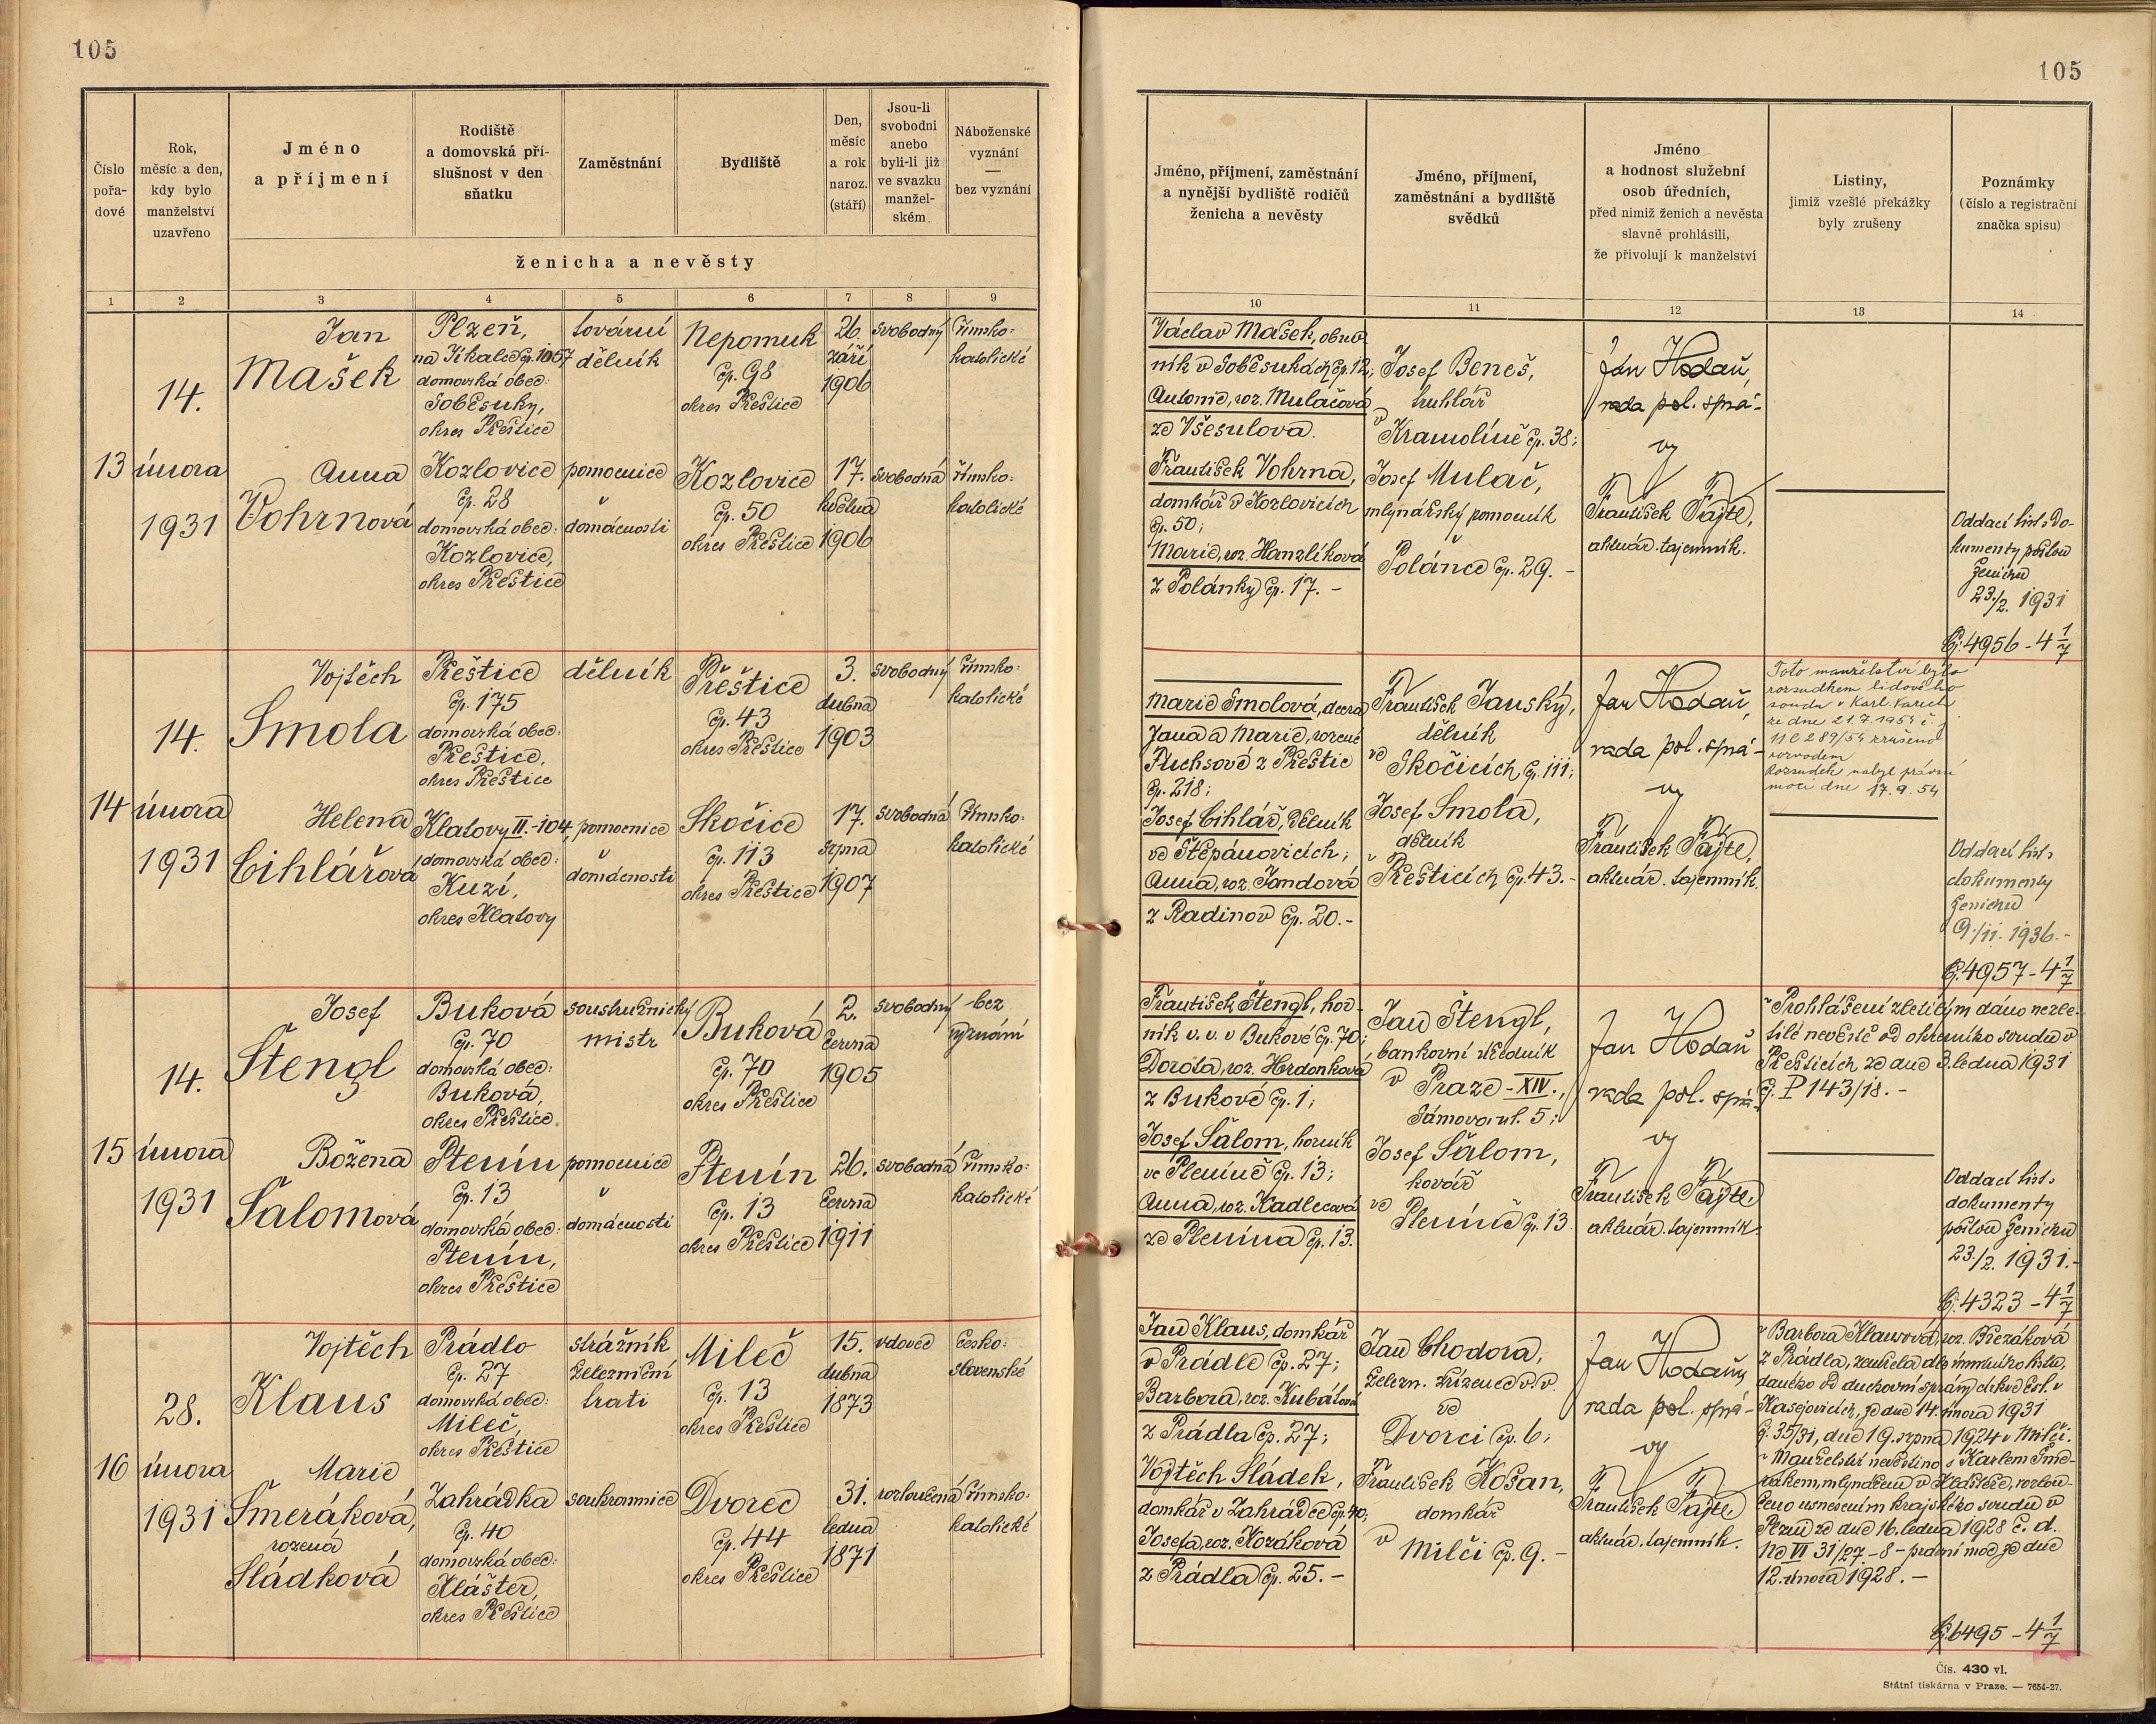 105
Číslo
pořa-
dové
Rok,
měsíc a den,
kdy bylo
manželství
uzavřeno
Jméno
a příjmení
Rodiště
a domovská pří-
slušnost v den
sňatku
Zaměstnání
Bydliště
Den,
měsíc
a rok
naroz.
(stáří)
Jsou-li
svobodni
anebo
byli-li již
ve svazku
manžel-
ském
Náboženské
vyznání
—
bez vyznání
ženicha a nevěsty
1 2 3 4 5 6 7 8 9
13
14.
února
1931
Jan
Mašek
Plzeň,
na Jíkalce čp. 1057
domovská obec:
Soběsuky,
okres Přeštice
tovární
dělník
Nepomuk
čp. 98
okres Přeštice
26.
září
1906
svobodný
římsko-
katolické
Anna
Vohrnová
Kozlovice
čp. 28
domovská obec:
Kozlovice,
okres Přeštice
pomocnice
v
domácnosti
Kozlovice
čp. 50
okres Přeštice
17.
května
1906
svobodná
římsko-
katolické
14
14.
února
1931
Vojtěch
Smola
Přeštice
čp. 175
domovská obec:
Přeštice,
okres Přeštice
dělník
Přeštice
čp. 43
okres Přeštice
3.
dubna
1903
svobodný
římsko-
katolické
Helena
Cihlářová
Klatovy II.-104,
domovská obec:
Kuzí,
okres Klatovy
pomocnice
v
domácnosti
Skočice
čp. 113
okres Přeštice
17.
srpna
1907
svobodná
římsko-
katolické
15
14.
února
1931
Josef
Štengl
Buková
čp. 70
domovská obec:
Buková,
okres Přeštice
soustružnický
mistr
Buková
čp. 70
okres Přeštice
2.
června
1905
svobodný
bez
vyznání
Božena
Šalomová
Ptenín
čp. 13
domovská obec:
Ptenín,
okres Přeštice
pomocnice
v
domácnosti
Ptenín
čp. 13
okres Přeštice
26.
června
1911
svobodná
římsko-
katolické
16
28.
února
1931
Vojtěch
Klaus
Prádlo
čp. 27
domovská obec:
Mileč,
okres Přeštice
strážník
železniční
trati
Mileč
čp. 13
okres Přeštice
15.
dubna
1873
vdovec
česko-
slovenské
Marie
Šmeráková,
rozená
Sládková
Zahrádka
čp. 40
domovská obec:
Klášter,
okres Přeštice
soukromnice
Dvorec
čp. 44
okres Přeštice
31.
ledna
1871
rozloučená
římsko-
katolické
105
Jméno, příjmení, zaměstnání
a nynější bydliště rodičů
ženicha a nevěsty
Jméno, příjmení,
zaměstnání a bydliště
svědků
Jméno
a hodnost služební
osob úředních,
před nimiž ženich a nevěsta
slavně prohlásili,
že přivolují k manželství
Listiny,
jimiž vzešlé překážky
byly zrušeny
Poznámky
(číslo a registrační
značka spisu)
10 11 12 13 14
Václav Mašek, obuv-
ník v Soběsukách čp. 12;
Antonie, roz. Muláčová
ze Všesulova.
František Vohrna,
domkář v Kozlovicích
čp. 50;
Marie, roz. Hanzlíková
z Polánky čp. 17. -
Josef Beneš,
truhlář
v
Kramolíně čp. 38;
Josef Mulač,
mlynářský pomocník
v
Polánce čp. 29. -
Jan Hodaň,
rada pol. sprá-
vy
František Fajtl,
aktuár. tajemník.
Oddací list, do-
kumenty poštou
ženichu
23./2. 1931
Čj. 4956 - 4 1/7
Marie Smolová, dcera
Jana a Marie, rozené
Fuchsové z Přeštic
čp. 218;
Josef Cihlář, dělník
ve Štěpánovicích;
Anna, roz. Jandová
z Radinov čp. 20. -
František Janský,
dělník
ve
Skočicích čp. 111;
Josef Smola,
dělník
v
Přešticích čp. 43. -
Jan Hodaň,
rada pol. sprá-
vy
František Fajtl,
aktuár. tajemník.
Toto manželství bylo
rozsudkem lidového
soudu v Karl. Varech
ze dne 21.7.1954 č.
11 C 289/54 zrušeno
rozvodem
Rozsudek nabyl právní
moci dne 17.9.54
Oddací list,
dokumenty
ženichu
9./11. 1936. -
Čj. 4957 - 4 1/7
František Štengl, hor-
ník v. v. v Bukové čp. 70;
Dorota, roz. Hrdonková
z Bukové čp. 1;
Josef Šalom, horník
ve Pteníně čp. 13;
Anna, roz. Kadlecová
ze Ptenína čp. 13.
Jan Štengl,
bankovní úředník
v Praze - XIV.,
Sámova ul. 5;
Josef Šalom,
kovář
ve
Pteníně čp. 13.
Jan Hodaň
rada pol. sprá-
vy
František Fajtl,
aktuár. tajemník.
Prohlášení zletilým dáno nezle-
tilé nevěstě od okresního soudu v
Přešticích ze dne 3. ledna 1931
čj. P 143/18. -
Oddací list,
dokumenty
poštou ženichu
23./2. 1931. -
Čj. 4323 - 4 1/7
Jan Klaus, domkář
v Prádle čp. 27;
Barbora, roz. Kubátová
z Prádla čp. 27;
Vojtěch Sládek,
domkář v Zahrádce čp. 40;
Josefa, roz. Kozáková
z Prádla čp. 25. -
Jan Chodora,
železn. zřízenec v. v.
ve
Dvorci čp. 6;
František Kosan,
domkář
v
Milči čp. 9. -
Jan Hodaň,
rada pol. sprá-
vy
František Fajtl
aktuár. tajemník.
Barbora Klausová, roz. Brezáková
z Prádla, zemřela dle úmrtního listu,
daného od duchovní správy církve čsl. v
Kasejovicích, ze dne 14. února 1931
čj. 35/31, dne 19. srpna 1924 v Milči.
Manželství nevěstino s Karlem Šme-
rákem, mlynářem v Klášteře, rozlou-
čeno usnesením krajského soudu v
Plzni ze dne 16. ledna 1928 č. d.
Nc VI 31/27 - 8 - právní moc ze dne
12. února 1928. -
Čj. 6495 - 4 1/7
Čís. 430 vl.
Státní tiskárna v Praze. — 7654-27.